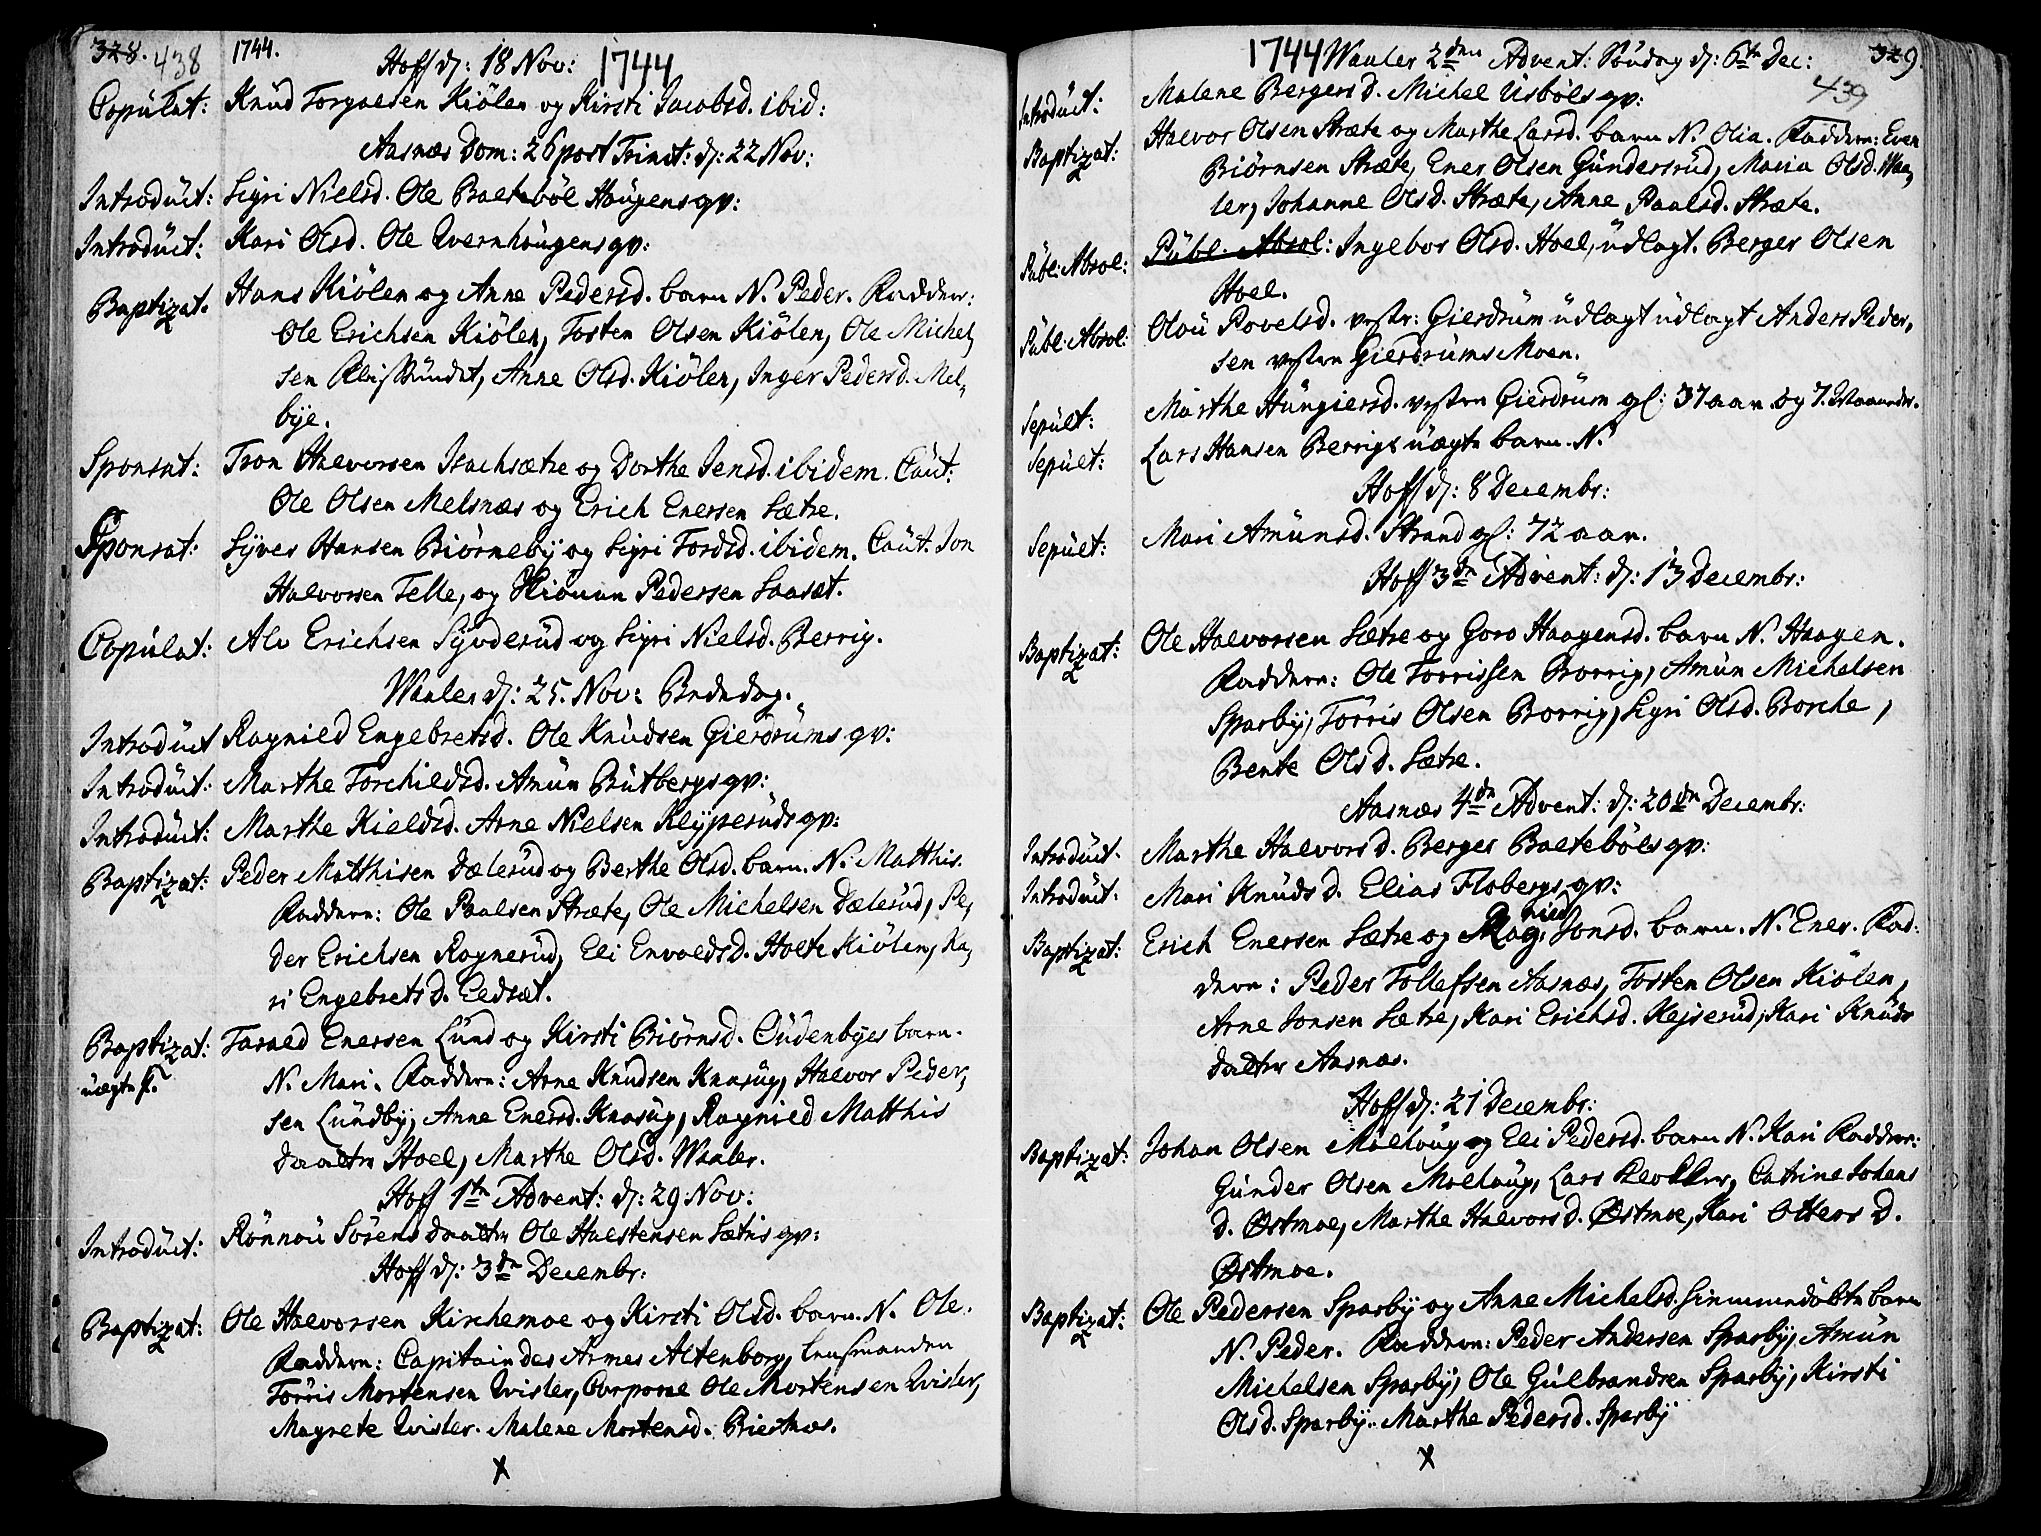 328. 438 1744.
Hoff d: 18 Nov: 1744
Copulat: Knud Torgalsen Kiölen og Kirsti Jacobsd. ibid:
Aasnæs Dom: 26 post Trinit: d: 22 Nov:
Introduct: Sigri Nielsd. Ole Baltebøl Haugens qv:
Introduct: Kari Olsd. Ole Qvernhougens qv:
Baptizat. Hans Kiölen og Anne Pedersd. barn N. Peder. Faddere:
Ole Erichsen Kiölen, Tosten Olsen Kiölen, Ole Michel,
sen, Anne Olsd. Kiölen, Inger Pedersd. Mel,
bye.
Sponsat: Tron Halvorsen Isachsætre og Dorthe Jensd. ibidem. Caut:
Ole Olsen Melsnæs og Erich Enersen Sætre.
Sponsat: Syver Hansen Biörneby og Sigri Tordsd. ibidem. Caut. Jon
Halvorsen Telle, og Pedersen Saaset.
Copulat: Alv Erichsen Syvderud og Sigri Nielsd. Berrig.
Waaler d: 25. Nov: Bededag.
Introduct Ragnied Engebretsd. Ole Knudsen Gierdrums qv:
Introduct: Marthe Torchildsd. Amun Butbergs qv:
Introduct: Marthe Kieldsd. Arne Nielsen Klyperuds qv:
Baptizat: Peder Matthisen Dælerud og Berthe Olsd. barn. N. Matthis.
Faddere: Ole Paulsen Stræte, Ole Michelsen Dælerud, Pe,
der Erichsen Ragnerud, Eli Envoldsd. Holte Kiölen, Ka,
ri Engebretsd. Eldset.
Baptizat: Taraed Enersen Lund og Kirsti Biörnsd. Gudenbyes barn.
uægte f. N. Mari. Faddere: Arne Knudsen Knasug, Halvor Peder,
sen Lundby, Anne Enersd. Knasug, Ragnied Matthis
daatter Hoel, Marthe Olsd. Waaler.
Hoff 1te Advent: d: 29 Nov:
Introduct: Rönnou Sörens daatter Ole Halstensen Sætris qv:
Hoff d: 3de Decembr:
Baptizat: Ole Halvorsen Kirchemoe og Kirsti Olsd. barn. N. Ole.
Faddere: Capitain des Armes Altenborg, Lensmanden
Torris Mortensen Qvisler, Corporal Ole Mortensen Qvisler,
Magrete Qvisler. Malene Mortensd.
x
1744 Waaler 2den Advent: Söndag d: 6te Dec: 329.
439
Introduct: Malene Bergersd. Michel Usböls qv:
Baptizat: Halvor Olsen Stræte og Marthe Larsd. barn N. Olia. Faddere: Even
Biörnsen Stræte, Ener Olsen Gundersrud, Maria Olsd. Waa,
ler, Johanne Olsd. Stræte, Anne Paulsd. Stræte.
Publ: Absol: Publ. Absol: Ingebor Olsd. Hoel, udlagt. Berger Olsen
Hoel.
Publ: Absol: Olou Povelsd. vestr: Gierdrum udlagt udlagt Anders Peder,
sen vestre Gierdrums Moen.
Sepult: Marthe Hungiersd. vestre Gierdrum gl: 37 aar og 7. Maaneder.
Sepult: Lars Hansen Berrigs uægte barn. N.
Hoff d: 8 Decembr:
Sepult: Mari Amunsd. Strand gl: 72 aar.
Hoff 3de Advent: d: 13 Decembr:
Baptizat: Ole Halvorsen Sætre og Goro Haagensd. barn N. Haagen.
Faddere: Ole Torrissen Borrig, Amun Michelsen
Sparby, Torris Olsen Borrig, Sigri Olsd. Borche,
Bente Olsd. Sætre.
Aasnæs 4de Advent: d: 20de Decembr:
Introduct. Marthe Halvorsd. Berger Baltebøls qv:
Introduct. Mari Knudsd. Elias Flobergs qv:
Baptizat: Erich Enersen Sætre og Ragnied Jonsd. barn. N. Ener. Fad:
dere: Peder Tollefsen Aasnæs, Tosten Olsen Kiölen,
Arne Jonsen Sætre, Kari Erichsd. Kejserud, Kari Knuds
daatter Aasnæs.
Hoff d: 21 Decembr:
Baptizat: Johan Olsen Moelhoug og Eli Pedersd. barn N. Kari Faddere:
Gunder Olsen Moelhoug, Lars Klocker, Catrine Johans
d. Østmoe, Marthe Halvorsd. Østmoe, Kari Ottersd.
Østmoe.
Baptizat: Ole Pedersen Sparby og Anne Michelsd. hiemmedöbte barn
N. Peder. Faddere: Peder Andersen Sparby, Amun
Michelsen Sparby, Ole Gulbrandsen Sparby, Kirsti
Olsd. Sparby. Marthe Pedersd. Sparby
x